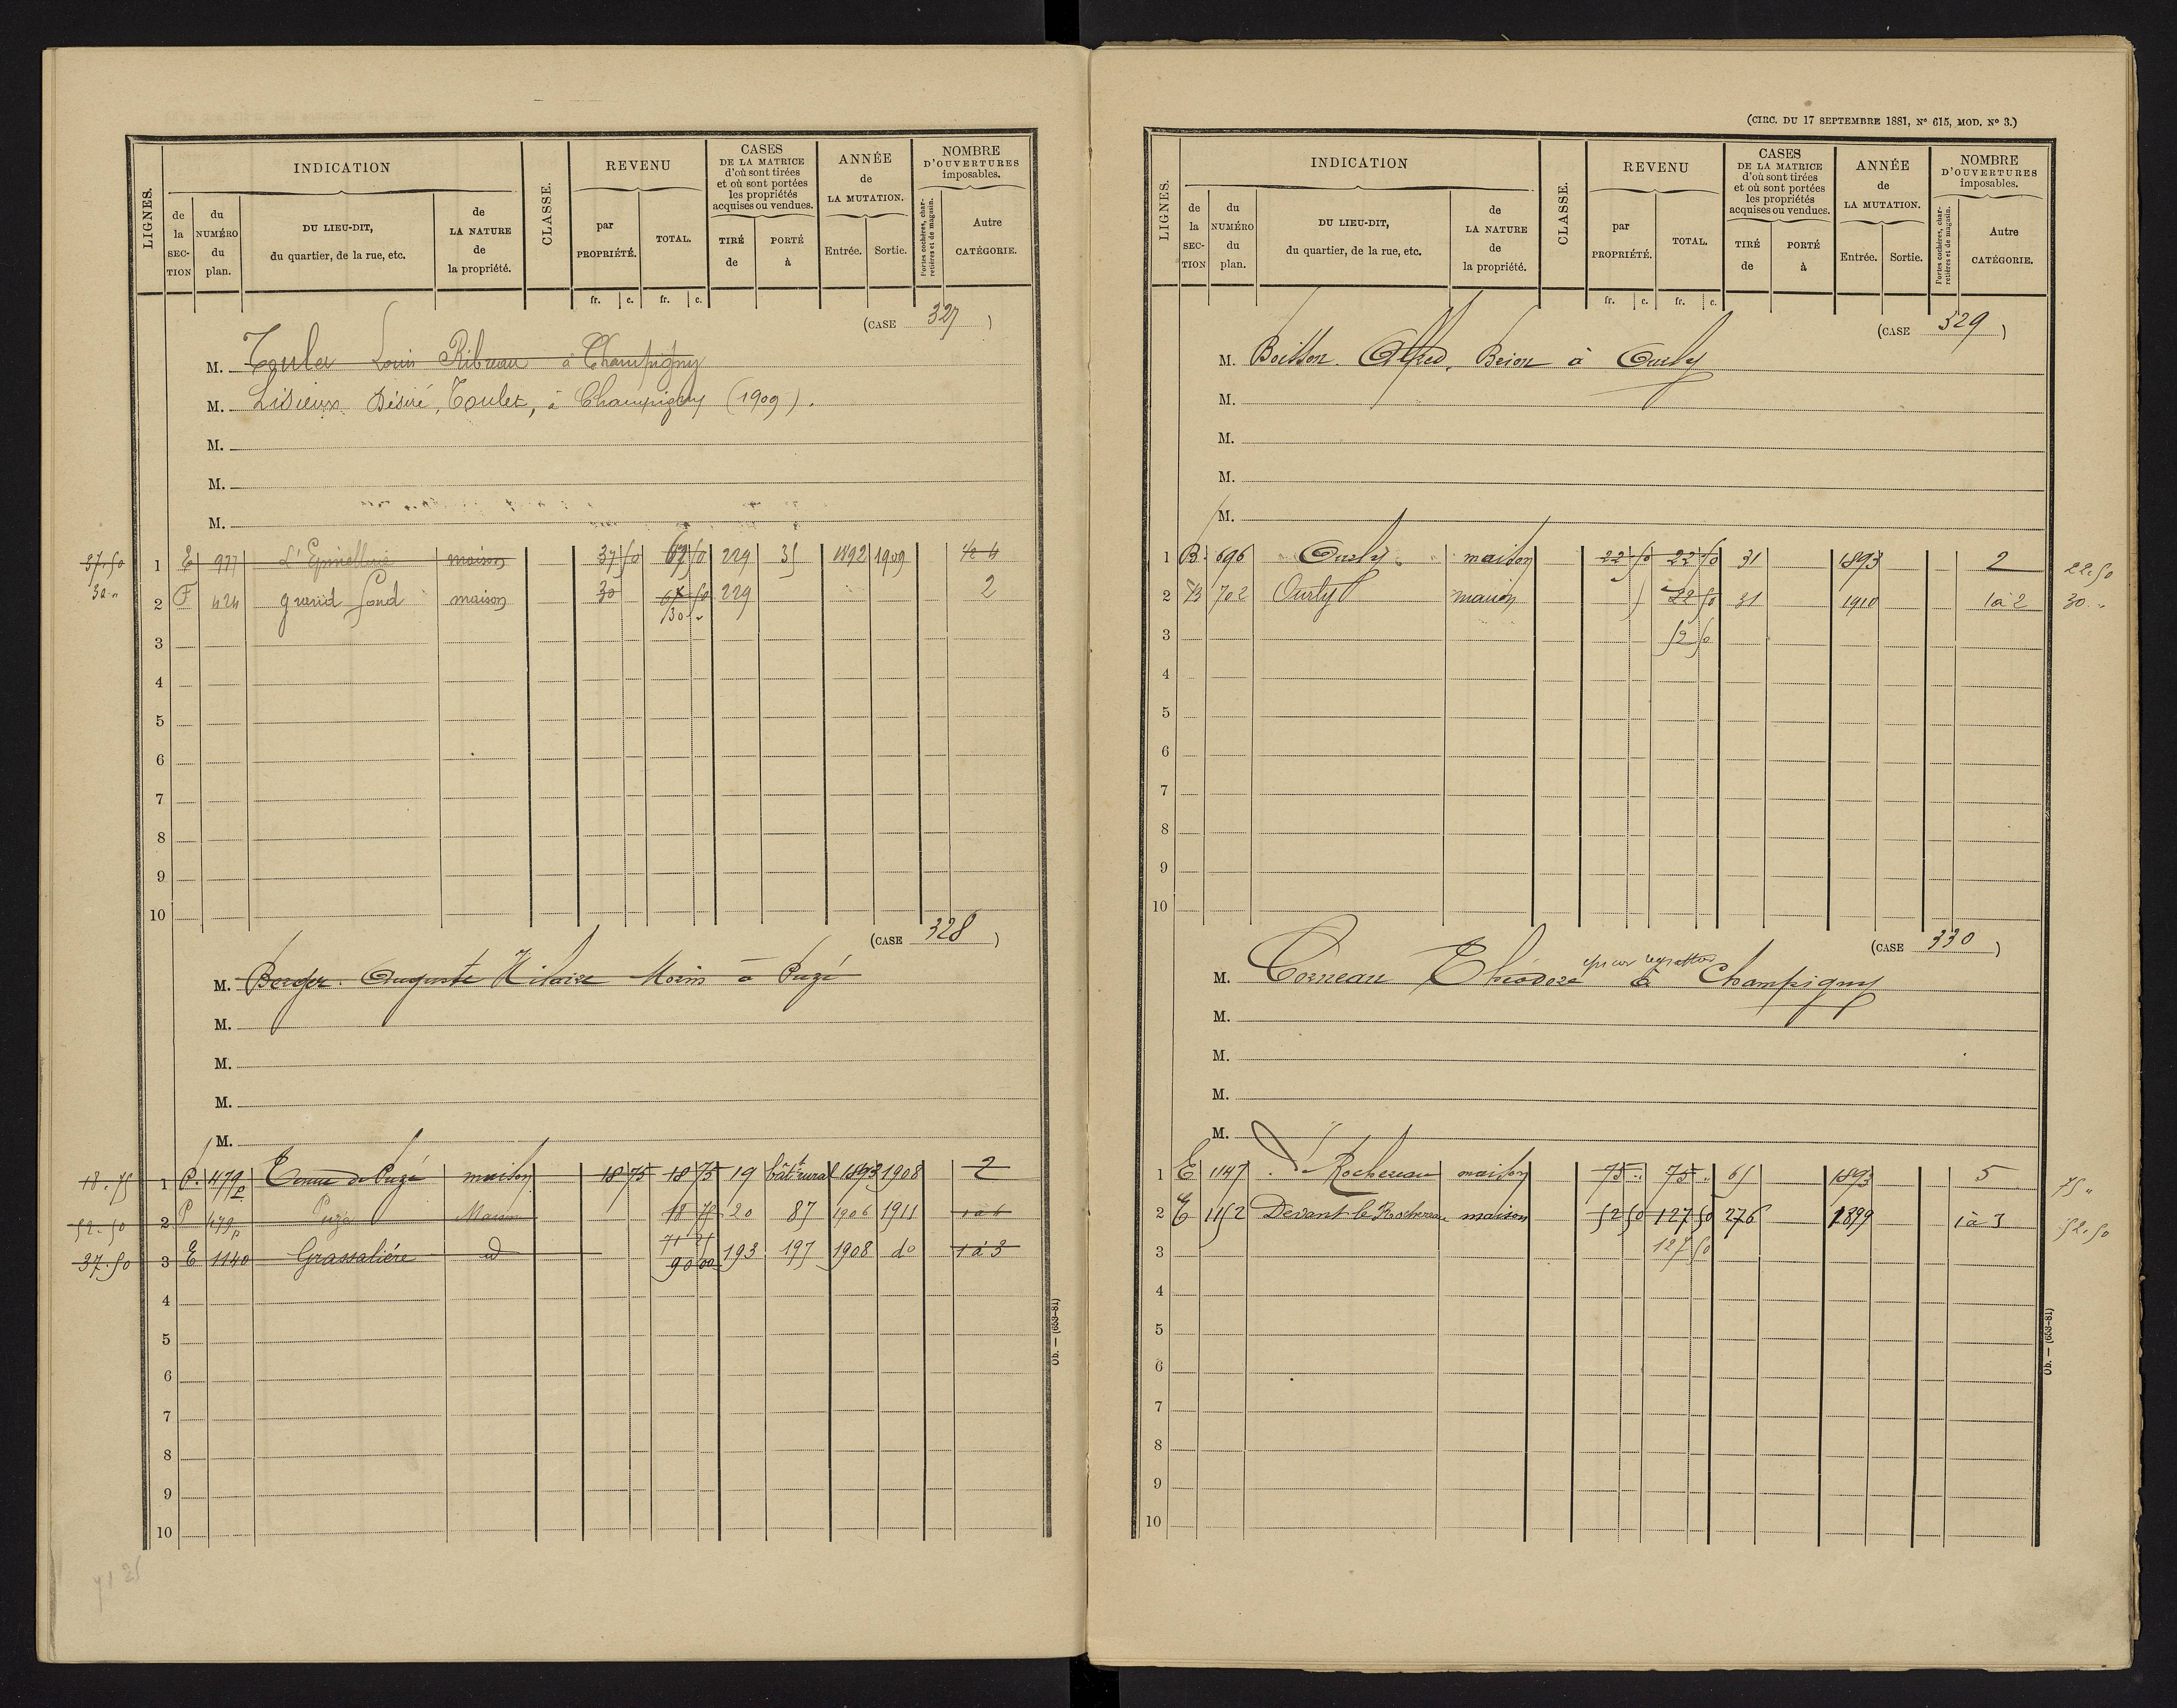 INDICATION
CLASSE.
REVENU
CASES
DE LA MATRICE
d'où sont tirées
et où sont portées
les propriétés
acquises ou vendues.
ANNÉE
de
LA MUTATION.
NOMBRE
D'OUVERTURES
imposables.
LIGNES.
de la SECTION
du NUMÉRO du plan.
DU LIEU-DIT,
du quartier, de la rue, etc.
de LA NATURE de la propriété.
par PROPRIÉTÉ.
TOTAL.
TIRÉ de
PORTÉ à
Entrée.
Sortie.
Portes cochères, charretières et de magasin.
Autre CATÉGORIE.
fr. c. fr. c.
(CASE 327)
M. Toulet Louis Ribreau à Champigny
M. Lisieux Désiré, Toulet, à Champigny (1909).
M.
M.
M.
37.50 1 E 977 L'Epinellerie maison 37 50 67 50 229 35 1892 1909
30 " 2 F 424 grand fond maison 30 67 50 229 2
30 "
3
4
5
6
7
8
9
10
(CASE 328)
M. Berger Auguste Hilaire Morin à Puzé
M.
M.
M.
M.
18.75 1 P. 479p maison 18 75 18 75 19 bât rural 1893 1908 2
52.50 2 P 479p Puzé Maison 18 75 20 87 1906 1911 1 à 6
71 25
37.50 3 E 1140 Grassalière id 90 00 193 197 1908 do 1 à 3
4
5
6
7
8
9
10
71 25
Ob. — (653-81)
(CIRC. DU 17 SEPTEMBRE 1881, N° 615, MOD. N° 3.)
INDICATION
CLASSE.
REVENU
CASES
DE LA MATRICE
d'où sont tirées
et où sont portées
les propriétés
acquises ou vendues.
ANNÉE
de
LA MUTATION.
NOMBRE
D'OUVERTURES
imposables.
LIGNES.
de la SECTION
du NUMÉRO du plan.
DU LIEU-DIT,
du quartier, de la rue, etc.
de LA NATURE de la propriété.
par PROPRIÉTÉ.
TOTAL.
TIRÉ de
PORTÉ à
Entrée.
Sortie.
Portes cochères, charretières et de magasin.
Autre CATÉGORIE.
fr. c. fr. c.
(CASE 329)
M. Boisson Alfred, Beion à Ourly
M.
M.
M.
M.
1 B. 696 Ourly maison 22 50 22 50 31 1893 2 22.50
2 B 702 Ourly maison 22 50 31 1910 1 à 2 30 "
3 52 50
4
5
6
7
8
9
10
(CASE 330)
M. Corneau Théodore à Champigny
M.
M.
M.
M.
1 E 1147 Rochereau maison 75 " 75 " 65 1893 5 75 "
2 E 1152 Devant le Rochereau maison 52 50 127 50 276 1899 1 à 3 52.50
3 127 50
4
5
6
7
8
9
10
Ob. — (653-81)